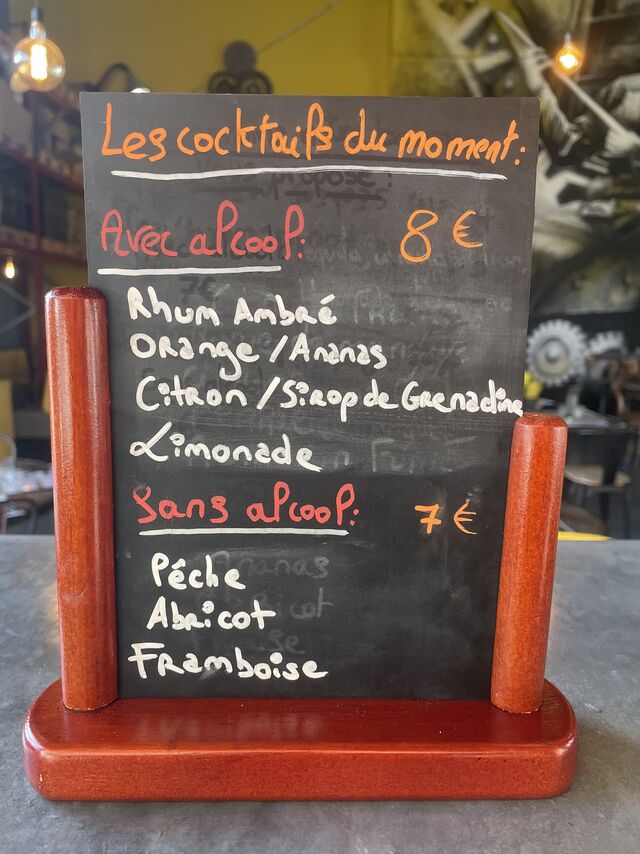 Les cocktails du moment:
Avec alcool: 8 €
Rhum Ambré
Orange / Ananas
Citron / Sirop de Grenadine
Limonade
Sans alcool: 7 €
Pêche
Abricot
Framboise